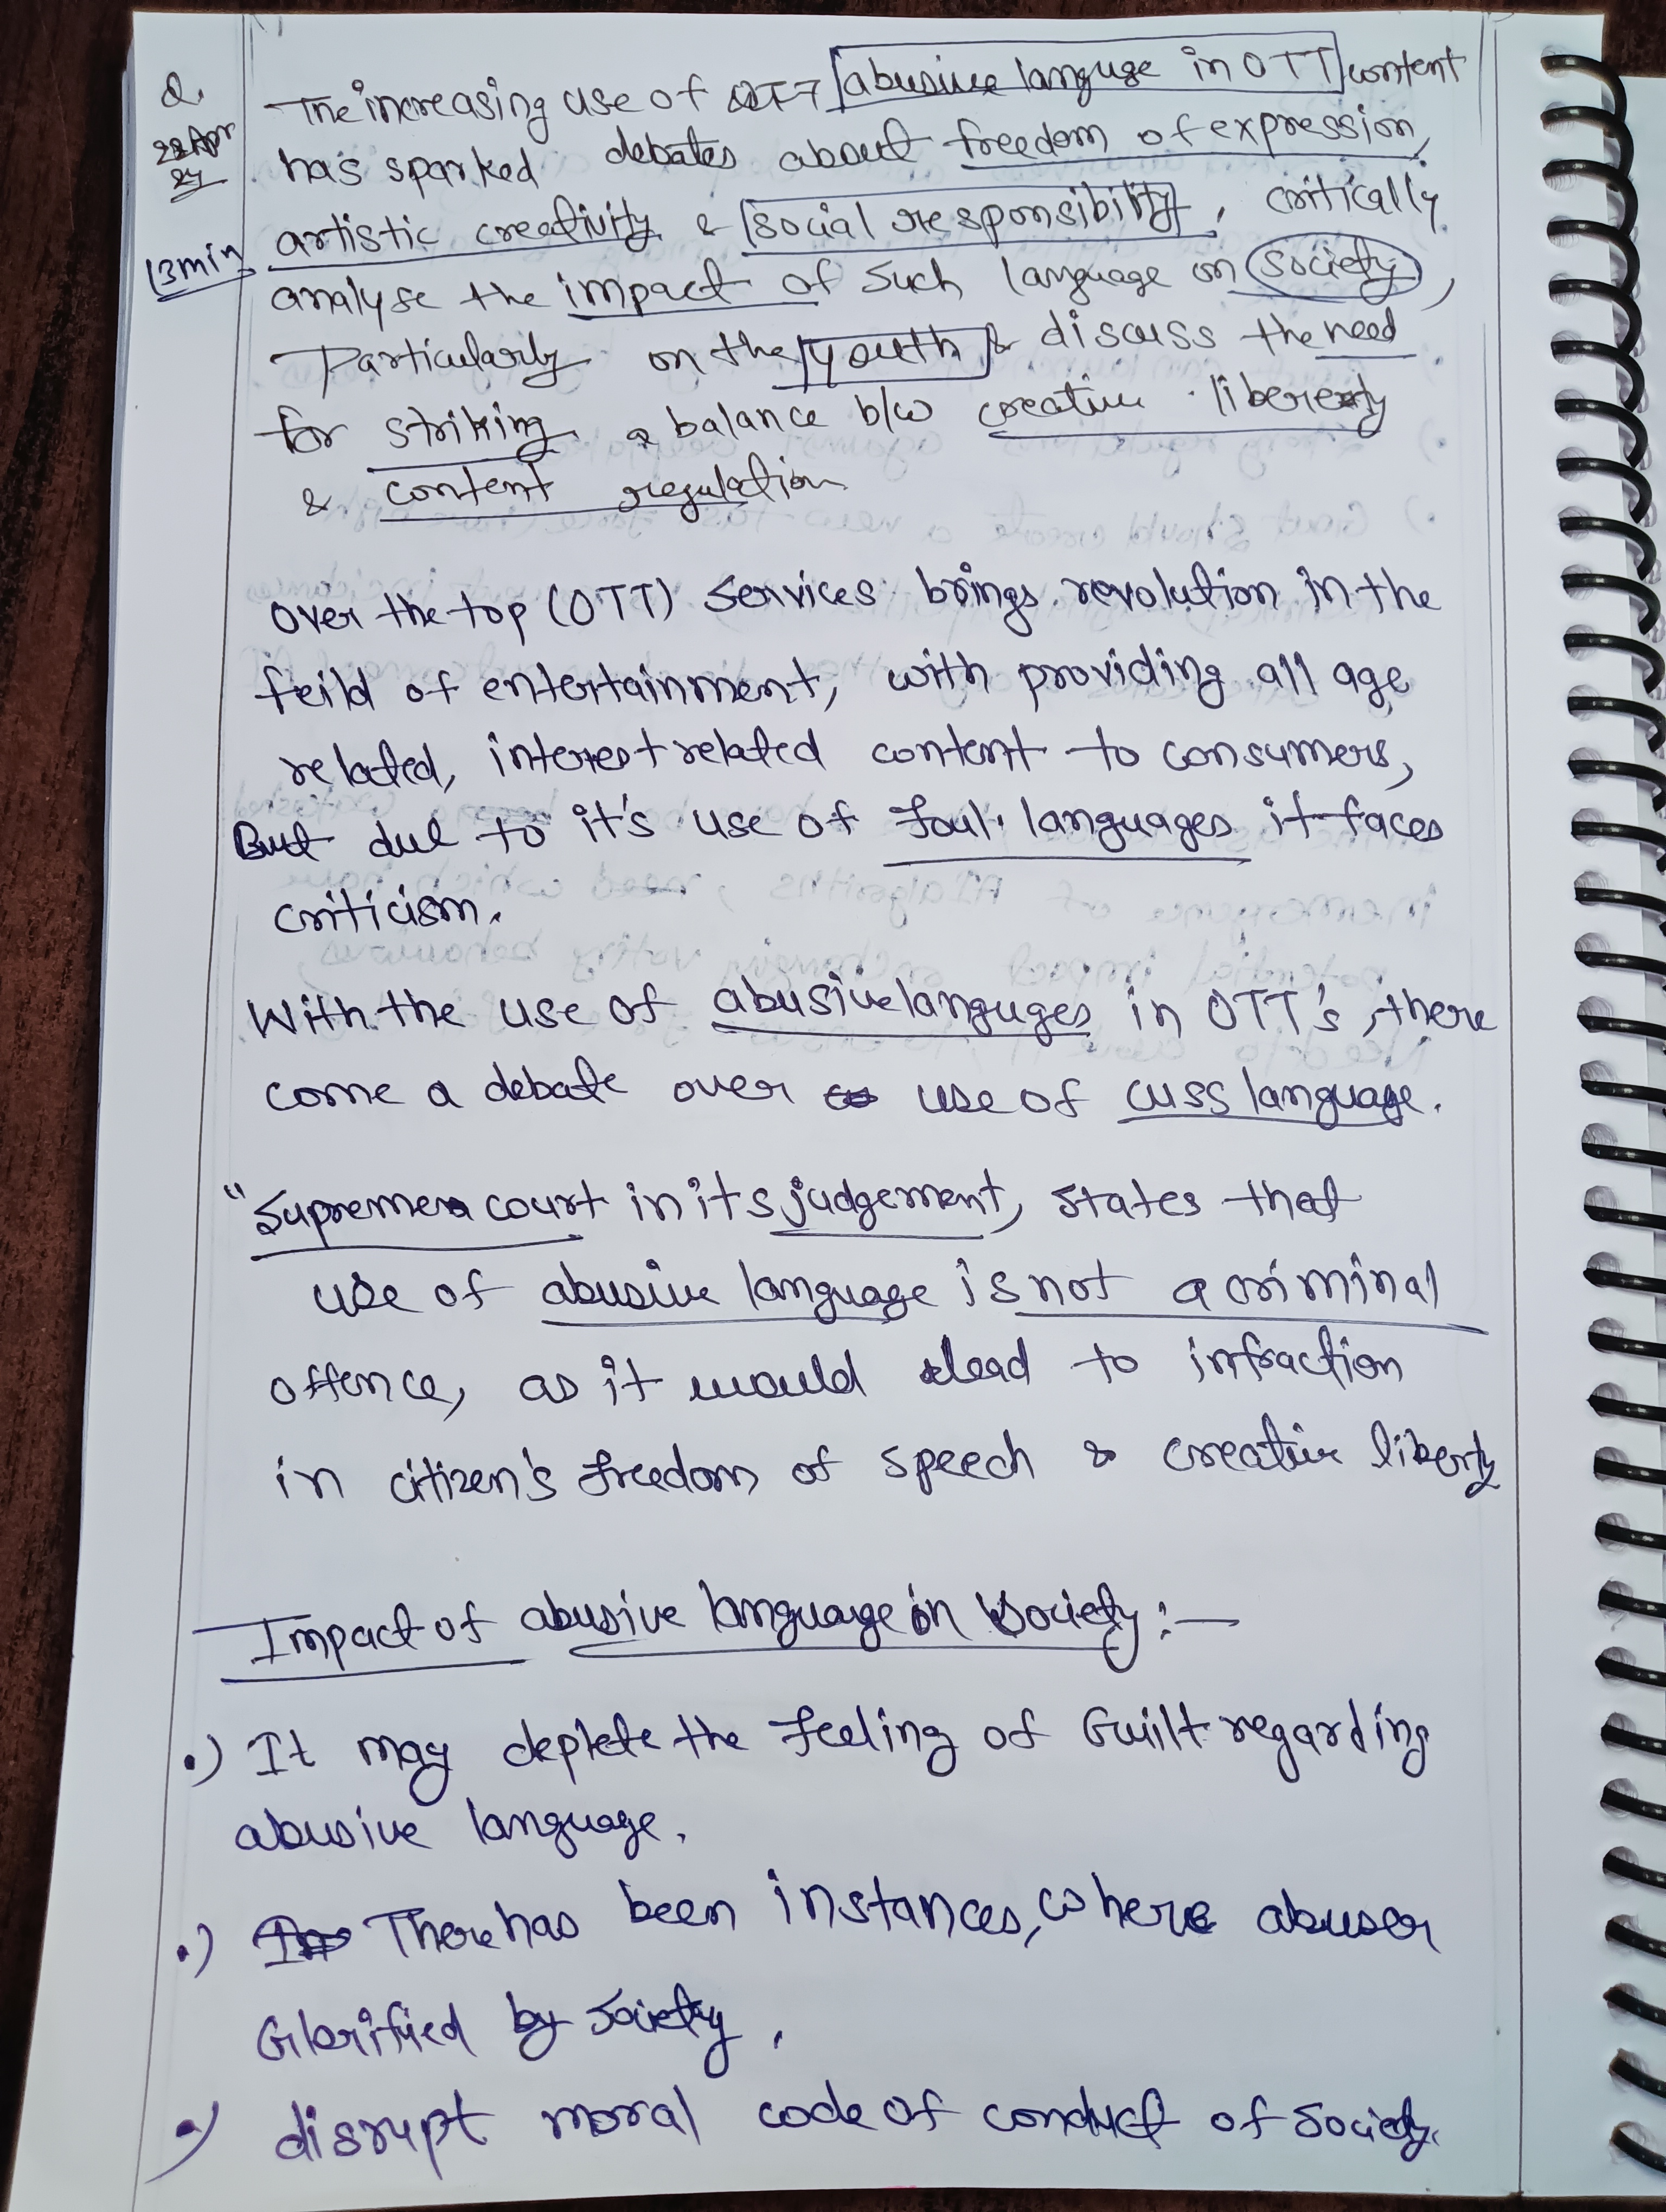 Q. The increasing use of OTT abusive languge in OTT content
22 Apr
24
has sparked debates about freedom of expression,
artistic creativity & social responsibility, critically
13min
analyse the impact of such language on society,
Particularly on the youth & discuss the need
for striking a balance b/w creative liberty
& content regulation
over the top (OTT) services brings revolution in the
feild of entertainment, with providing all age
related, interest related content to consumers,
But due to it's use of foul languages it faces
criticism.
With the use of abusive languges in OTT's, there
come a debate over use of cuss language.
"Supreme court in its judgement, states that
use of abusive language is not a criminal
offence, as it would lead to infraction
in citizen's freedom of speech & creative liberty
Impact of abusive language in Society :—
•) It may deplete the feeling of Guilt regarding
abusive language.
•) There has been instances, where abuser
Glorified by society.
•) disrupt moral code of conduct of society.